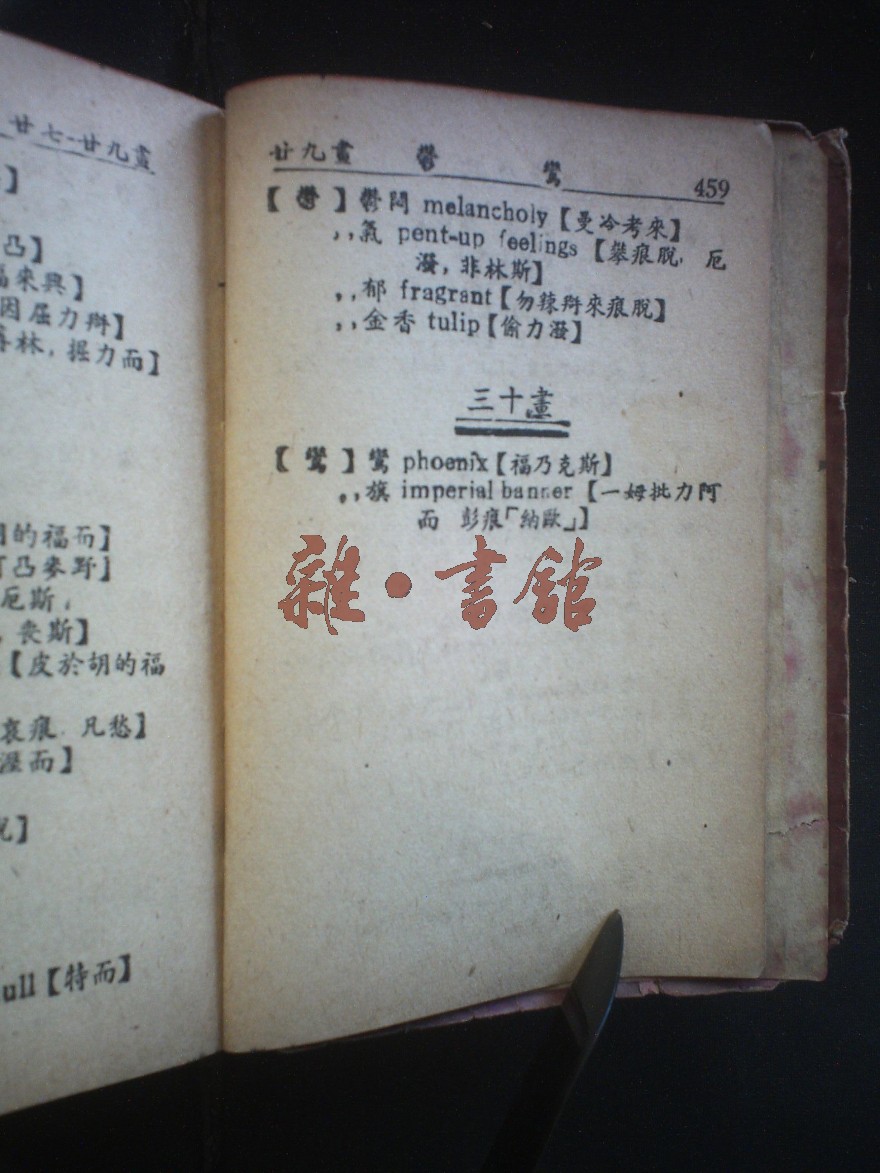 廿七-廿九畫
】
凸】
福來興】
因屈力辮】
林,握力而】
的福而】
凸麥野】
厄斯,
,喪斯】
【皮於胡的福
哀痕.凡愁】
溼而】
】
ull【特而】
廿九畫 鬱 鸞 459
【鬱】鬱悶 melancholy【曼冷考來】
,,氣 pent-up feelings【攀痕脫,厄
潑,非林斯】
,,郁 fragrant【勿辣辮來痕脫】
,,金香 tulip【偷力潑】
三十畫
【鸞】鸞 phoenix【福乃克斯】
,,旗 imperial banner【一姆批力阿
而 彭痕「納歐」】
雜·書館